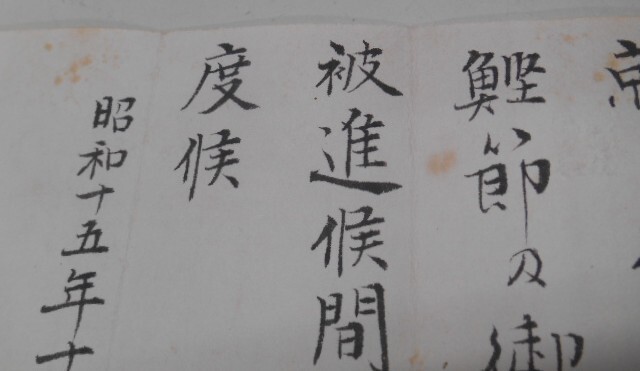 鰹節及御
被進候間
度候
昭和十五年十